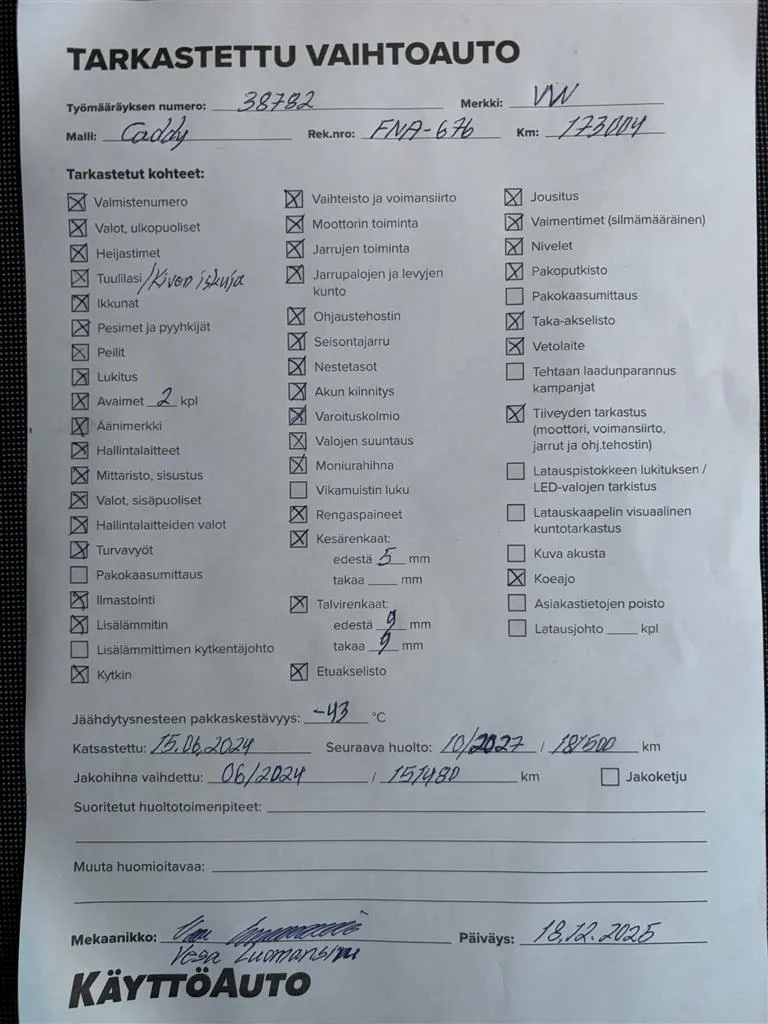 TARKASTETTU VAIHTOAUTO
Työmääräyksen numero: 38782 Merkki: VW
Malli: Caddy Rek.nro: FNA-676 Km: 173004
Tarkastetut kohteet:
Valmistenumero
Valot, ulkopuoliset
Heijastimet
Tuulilasi /Kiven iskuja
Ikkunat
Pesimet ja pyyhkijät
Peilit
Lukitus
Avaimet 2 kpl
Äänimerkki
Hallintalaitteet
Mittaristo, sisustus
Valot, sisäpuoliset
Hallintalaitteiden valot
Turvavyöt
Pakokaasumittaus
Ilmastointi
Lisälämmitin
Lisälämmittimen kytkentäjohto
Kytkin
Vaihteisto ja voimansiirto
Moottorin toiminta
Jarrujen toiminta
Jarrupalojen ja levyjen
kunto
Ohjaustehostin
Seisontajarru
Nestetasot
Akun kiinnitys
Varoituskolmio
Valojen suuntaus
Moniurahihna
Vikamuistin luku
Rengaspaineet
Kesärenkaat:
edestä 5 mm
takaa mm
Talvirenkaat:
edestä 9 mm
takaa 9 mm
Etuakselisto
Jousitus
Vaimentimet (silmämääräinen)
Nivelet
Pakoputkisto
Pakokaasumittaus
Taka-akselisto
Vetolaite
Tehtaan laadunparannus
kampanjat
Tiiveyden tarkastus
(moottori, voimansiirto,
jarrut ja ohj.tehostin)
Latauspistokkeen lukituksen /
LED-valojen tarkistus
Latauskaapelin visuaalinen
kuntotarkastus
Kuva akusta
Koeajo
Asiakastietojen poisto
Latausjohto kpl
Jäähdytysnesteen pakkaskestävyys: -43 °C
Katsastettu: 15.06.2024 Seuraava huolto: 10/2027 / 181500 km
Jakohihna vaihdettu: 06/2024 / 151480 km Jakoketju
Suoritetut huoltotoimenpiteet:
Muuta huomioitavaa:
Mekaanikko: Päiväys: 18.12.2025
Vesa Luomansivu
KÄYTTÖAUTO